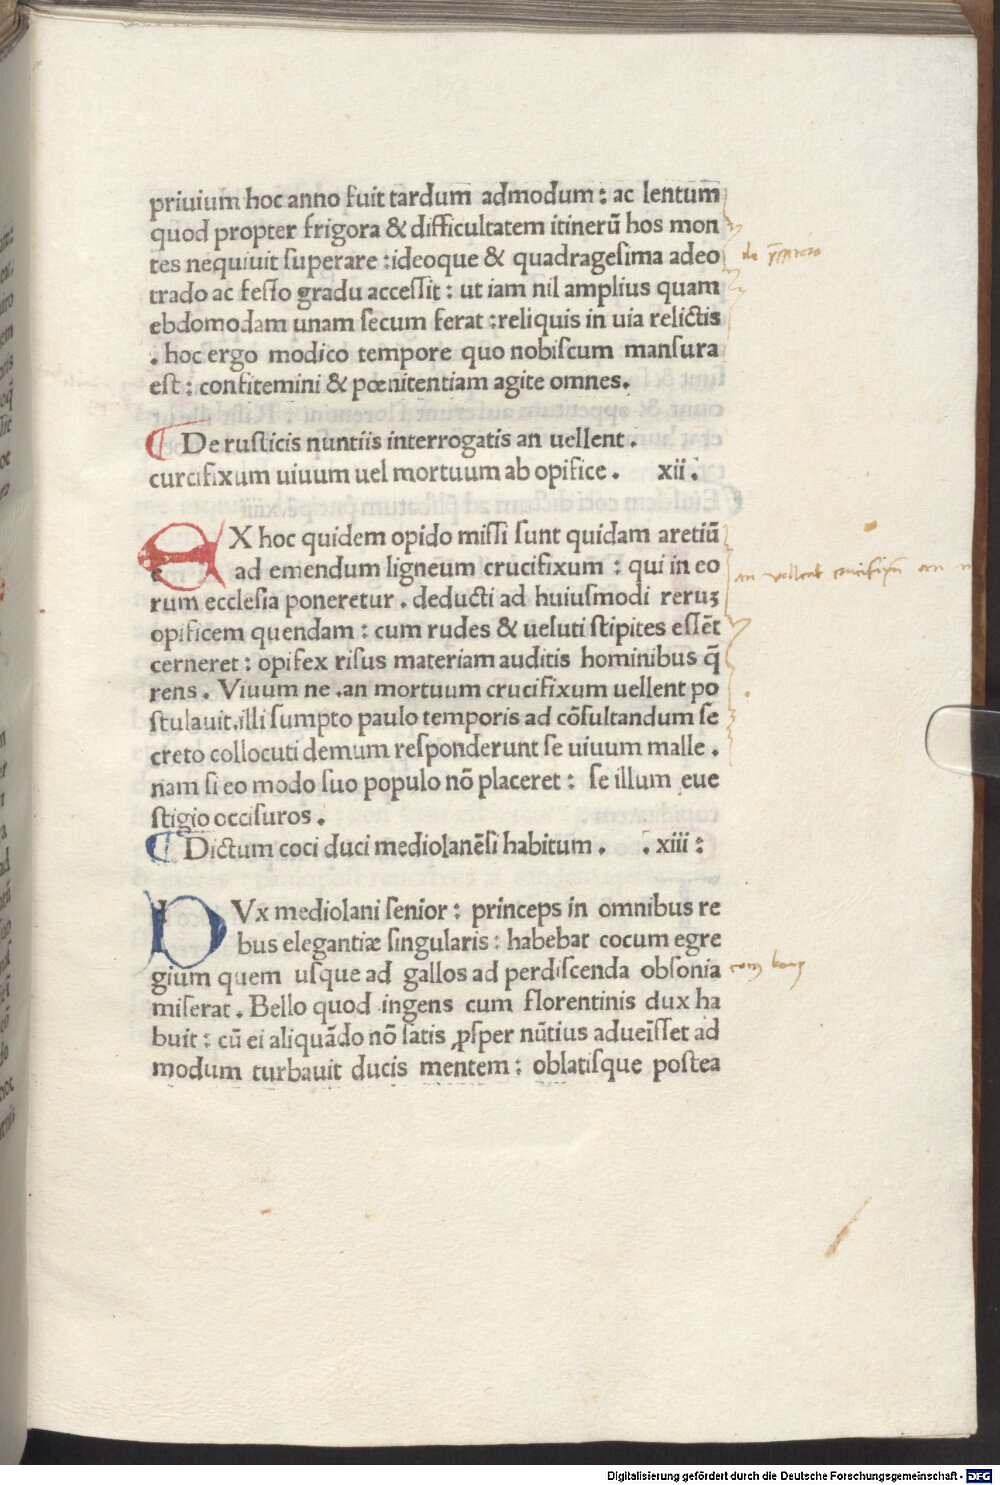 priuium hoc anno fuit tardum admodum : ac lentum
quod propter frigora & difficultatem itinerū hos mon
tes nequiuit ſuperare :ideoque & quadrageſima adeo
trado ac feſſo gradu acceſſit : ut iam nil amplius quam
ebdomodam unam ſecum ferat :reliquis in uia relictis
. hoc ergo modico tempore quo nobiſcum manſura
eſt : confitemini & pœnitentiam agite omnes.
¶ De ruſticis nuntiis interrogatis an uellent .
curcifixum uiuum uel mortuum ab opifice . xii .
EX hoc quidem opido miſſi ſunt quidam aretiū
ad emendum ligneum crucifixum : qui in eo
rum eccleſia poneretur . deducti ad huiuſmodi reruꝫ
opificem quendam : cum rudes & ueluti ſtipites eſſēt
cerneret : opifex riſus materiam auditis hominibus q̄
rens . Viuum ne .an mortuum crucifixum uellent po
ſtulauit.illi ſumpto paulo temporis ad cōſultandum ſe
creto collocuti demum reſponderunt ſe uiuum malle .
nam ſi eo modo ſuo populo nō placeret : ſe illum eue
ſtigio occiſuros .
¶ Dictum coci duci mediolanēſi habitum . . xiii :
DVx mediolani ſenior : princeps in omnibus re
bus elegantiæ ſingularis : habebat cocum egre
gium quem uſque ad gallos ad perdiſcenda obſonia
miſerat . Bello quod ingens cum florentinis dux ha
buit : cū ei aliquādo nō ſatis ꝓſper nūtius adueīſſet ad
modum turbauit ducis mentem : oblatiſque poſtea
an vellent crucifixū an
Digitalisierung gefördert durch die Deutsche Forschungsgemeinschaft - DFG